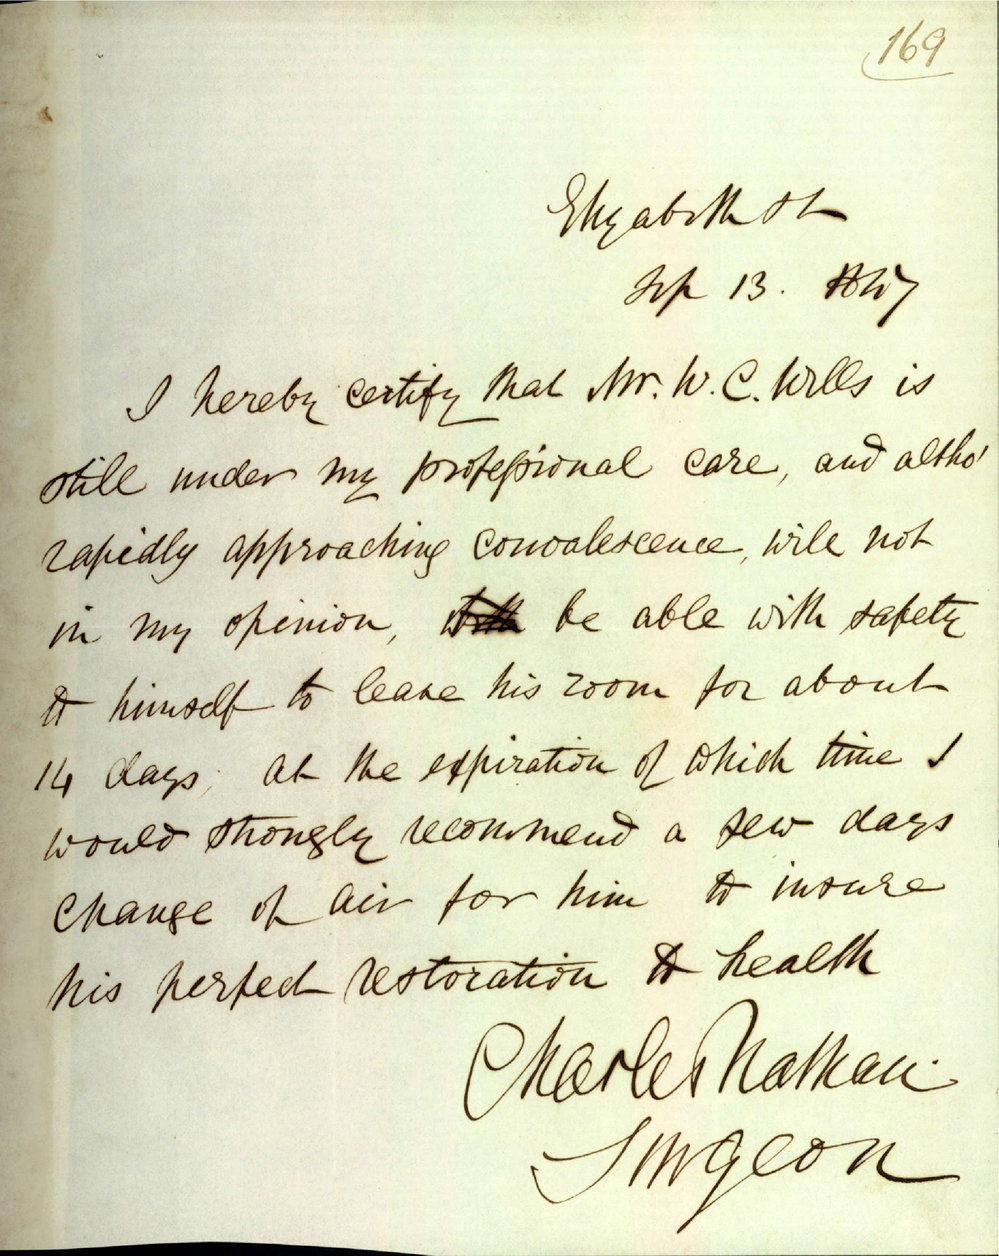 169
Elizabeth St
Sep 13. 1857
I hereby certify that Mr. W. C. Wills is
still under my professional care, and altho'
rapidly approaching convalescence, will not
in my opinion, be able with safety
to himself to leave his room for about
14 days, at the expiration of which time I
would strongly recommend a few days
change of air for him to insure
his perfect restoration to health
Charles Nathan.
Surgeon